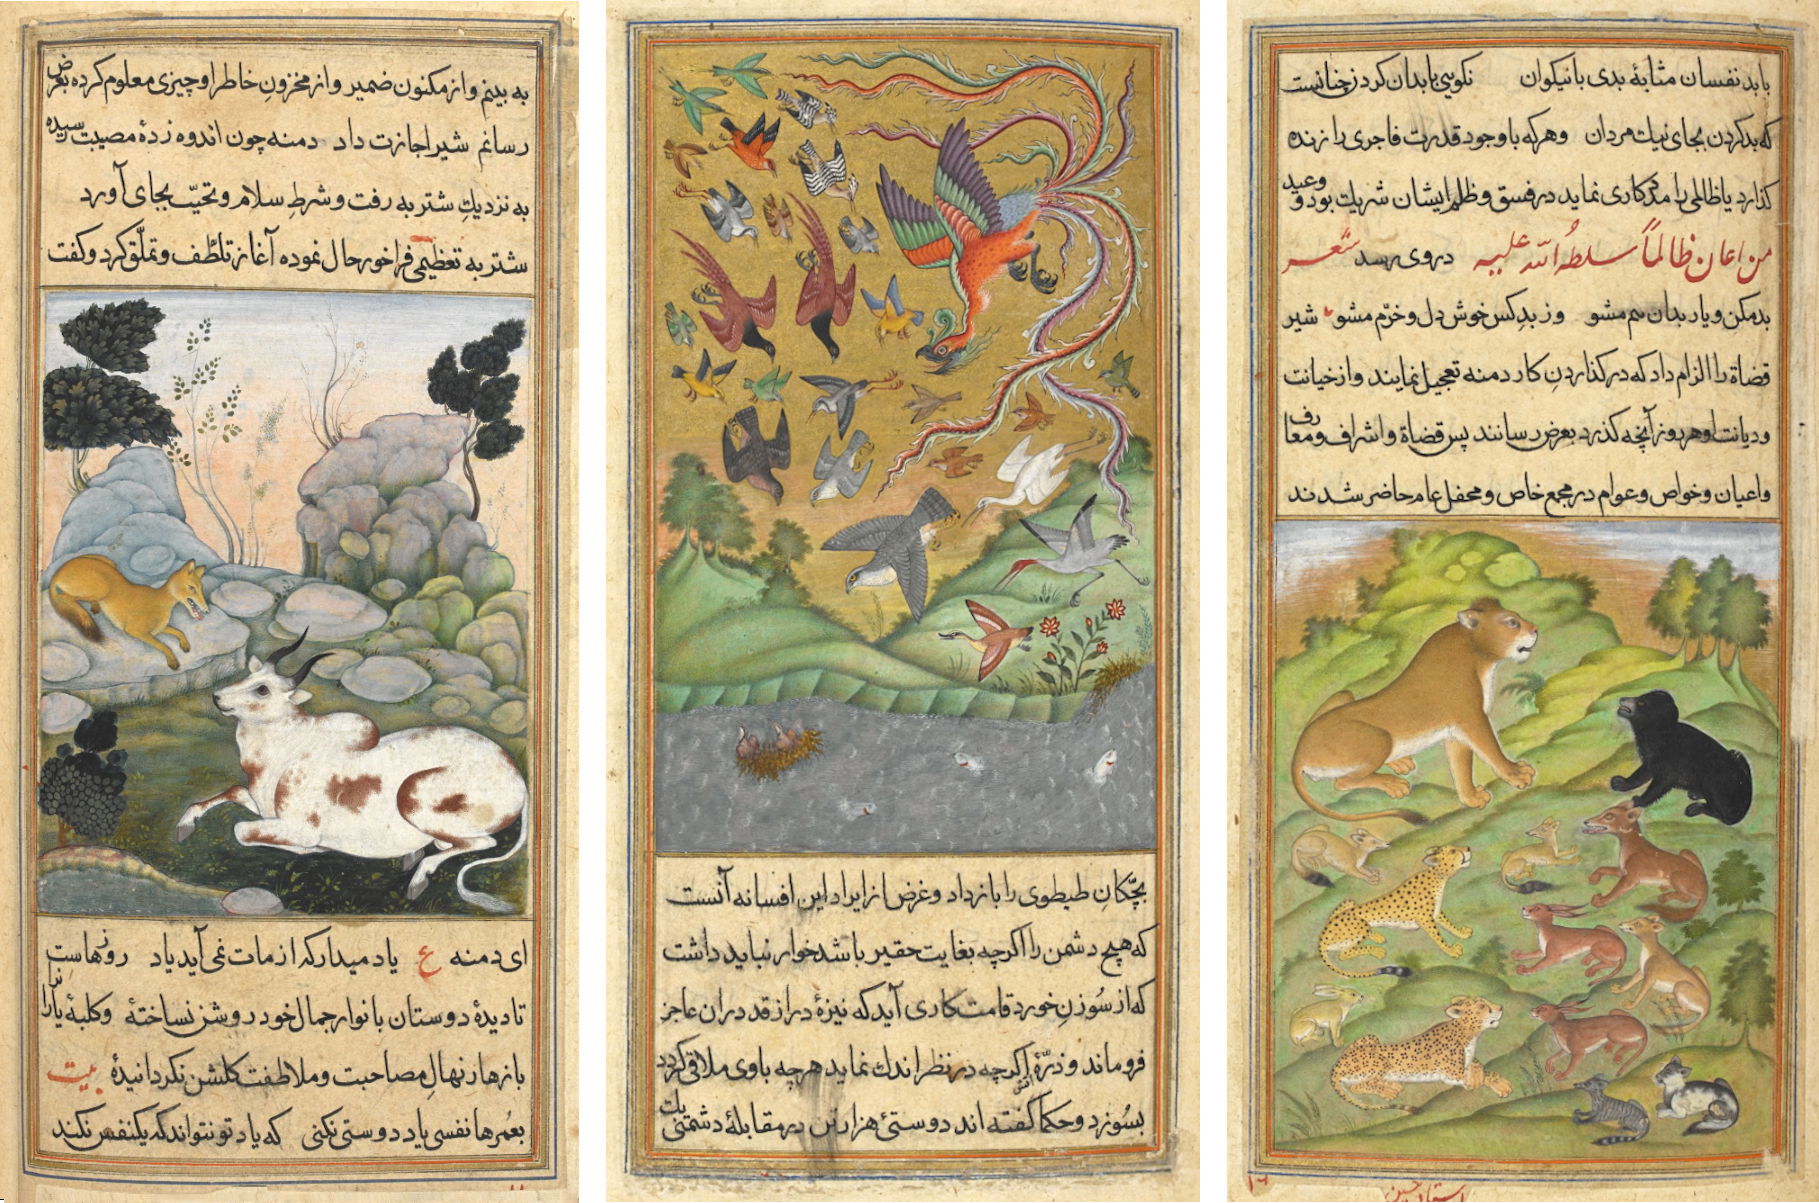 به بینم و از مکنون ضمیر و از مخزون خاطر او چیزی معلوم کرده بعرض
رسانم شیر اجازت داد دمنه چون اندوه زدهٔ مصیبت رسیده
به نزدیك شتربه رفت و شرط سلام و تحیّت بجای آورد
شتربه تعظیمی فراخور حال نموده آغاز تلطّف و تملّق کرد و کفت
ای دمنه ع یاد میدار که از مات نمی آید یاد روزهاست
تا دیدهٔ دوستان بانوار جمال خود روشن نساختهٔ و کلبهٔ
بازهار نهال مصاحبت و ملاطفت کلشن نکردانیدهٔ بیت
بعمرها نفسی یاد دوستی نکنی که یاد تو نتواند که یکنفس نکند
بچّکان طیطوی را باز داد و غرض از ایراد این افسانه آنست
که هیچ دشمن را اکرچه بغایت حقیر باشد خوار نباید داشت
که از سُوزن خورد قامت کاری آید که نیزهٔ دراز قد دران عاجز
فروماند و ذرّهٔ آتش اکرچه در نظر اندك نماید هرچه باوی ملاقی کردد
بسُوزد و حکما کفته اند دوستیٔ هزار تن در مقابلهٔ دشمنی یك
با بد نفسان مثابهٔ بدی با نیکوان نکویی با بدان کردن چنانست
که بد کردن بجای نیك مردان و هرکه با وجود قدرت فاجری را زنده
کذارد یا ظالمی را مددکاری نماید در فسق و ظلم ایشان شریك بود و وعید
من اعان ظالماً سلطهُ اللّه علیه در وی رسد شعر
بد مکن و یار بدان هم مشو وز بد کس خوش دل و خرّم مشو شیر
قضاة را الزام داد که در کذاردن کار دمنه تعجیل نمایند و از خیانت
و دیانت او هر روز آنچه کذرد بعرض رسانند پس قضاة و اشراف و معارف
و اعیان و خواص و عوام در مجمع خاص و محفل عام حاضر شدند
استاد حسین